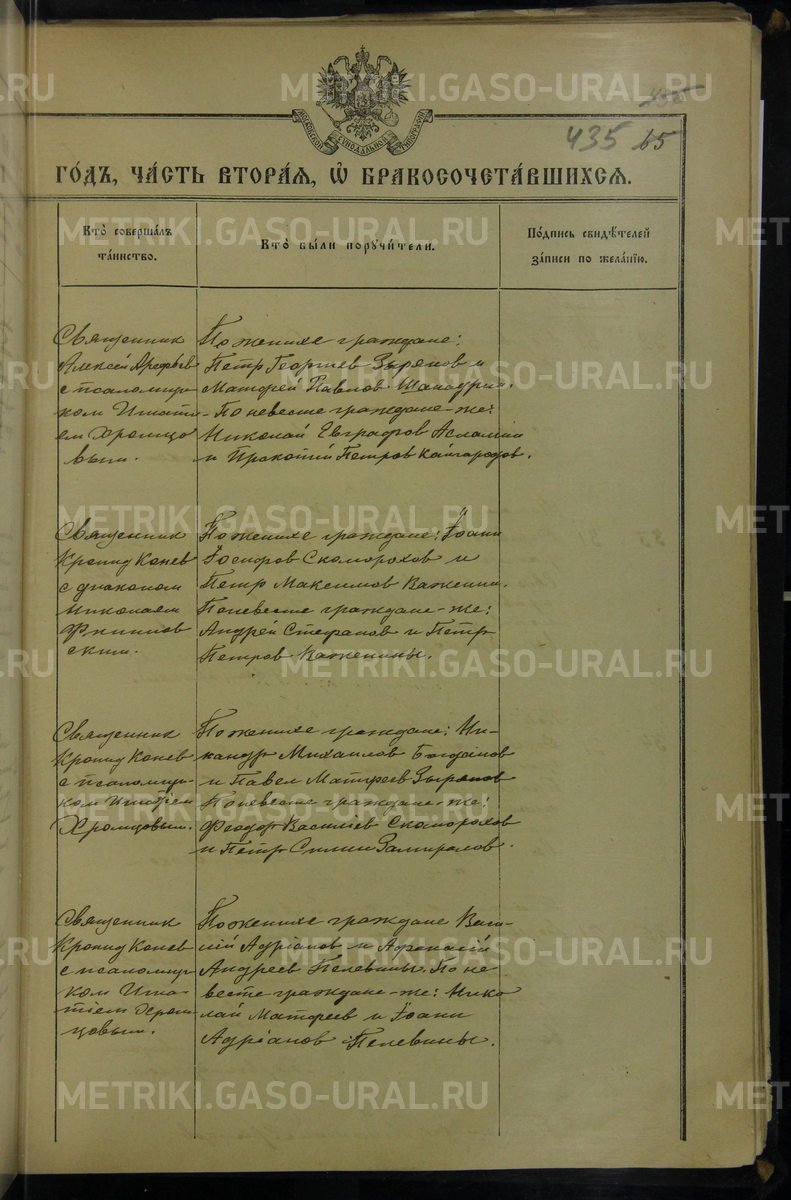 METRIKI.GASO-URAL.RU
МОСКОВСКОЙ СѴНОДАЛЬНОЙ ТИПОГРАФІИ
435 65
ГО́ДЪ, ЧА́СТЬ ВТОРА́Я, Ѽ БРАКОСОЧЕТА́ВШИХСЯ.
Кто̀ соверша́лъ
та́инство.
Кто̀ бы́ли поручи́тели.
По́дпись свидѣ́телей
за́писи по жела́нїю.
Священник
Алексей Арефьев
с псаломщи-
ком Игнати-
ем Хромцо
вым.
По женихе граждане:
Петр Георгиев Зырянов и
Матфей Павлов
- По невесте граждане-же:
Николай Евграфов
и Прокопий Петров Кайгородов.
Священник
Кронид Конев
с диаконом
Николаем
ским.
По женихе граждане: Іоанн
Скоморохов и
Петр Максимов Важенин.
По невесте граждане-же:
Андрей Стефанов и Петр
Петров Важенины.
Священник
Кронид Конев
с псаломщи-
ком Игнатіем
Хромцовым.
По женихе граждане: Ни-
кандр Михаилов Богданов
и Павел Матфеев Зырянов
По невесте граждане-же:
Феодор Василіев Скоморохов
и Петр Силин Замиралов.
Священник
Кронид Конев
с псаломщи
ком Игна-
тіем Хром-
цовым.
По женихе граждане Васи-
лій Адріанов и Афанасій
Андреев Пелевины. По не
весте граждане-же: Нико
лай Матфеев и Іоанн
Адріанов Пелевины.